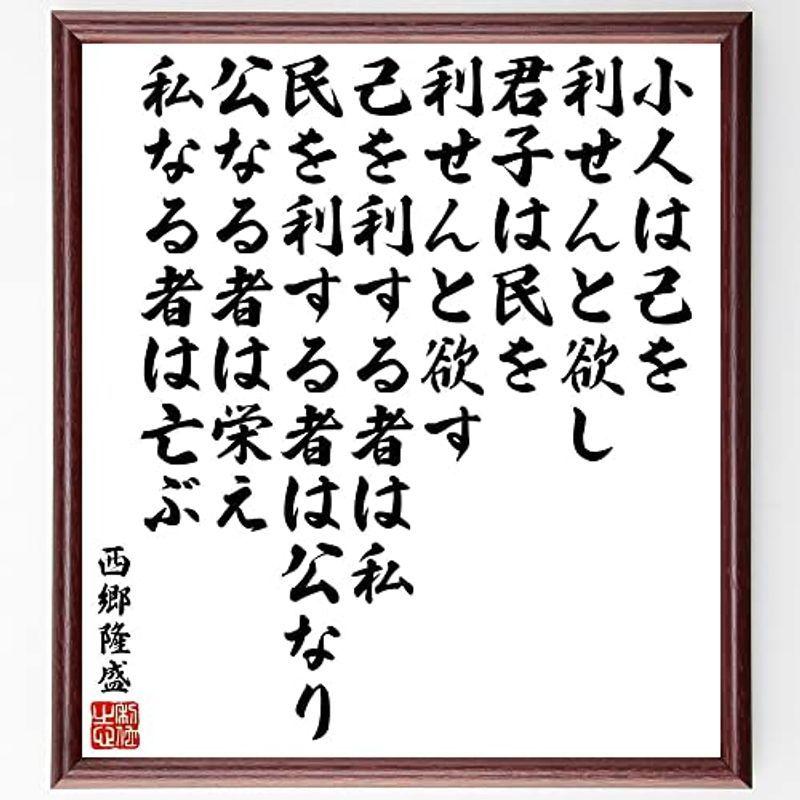 小人は己を
利せんと欲し
君子は民を
利せんと欲す
己を利する者は私
民を利する者は公なり
公なる者は栄え
私なる者は亡ぶ
西郷隆盛